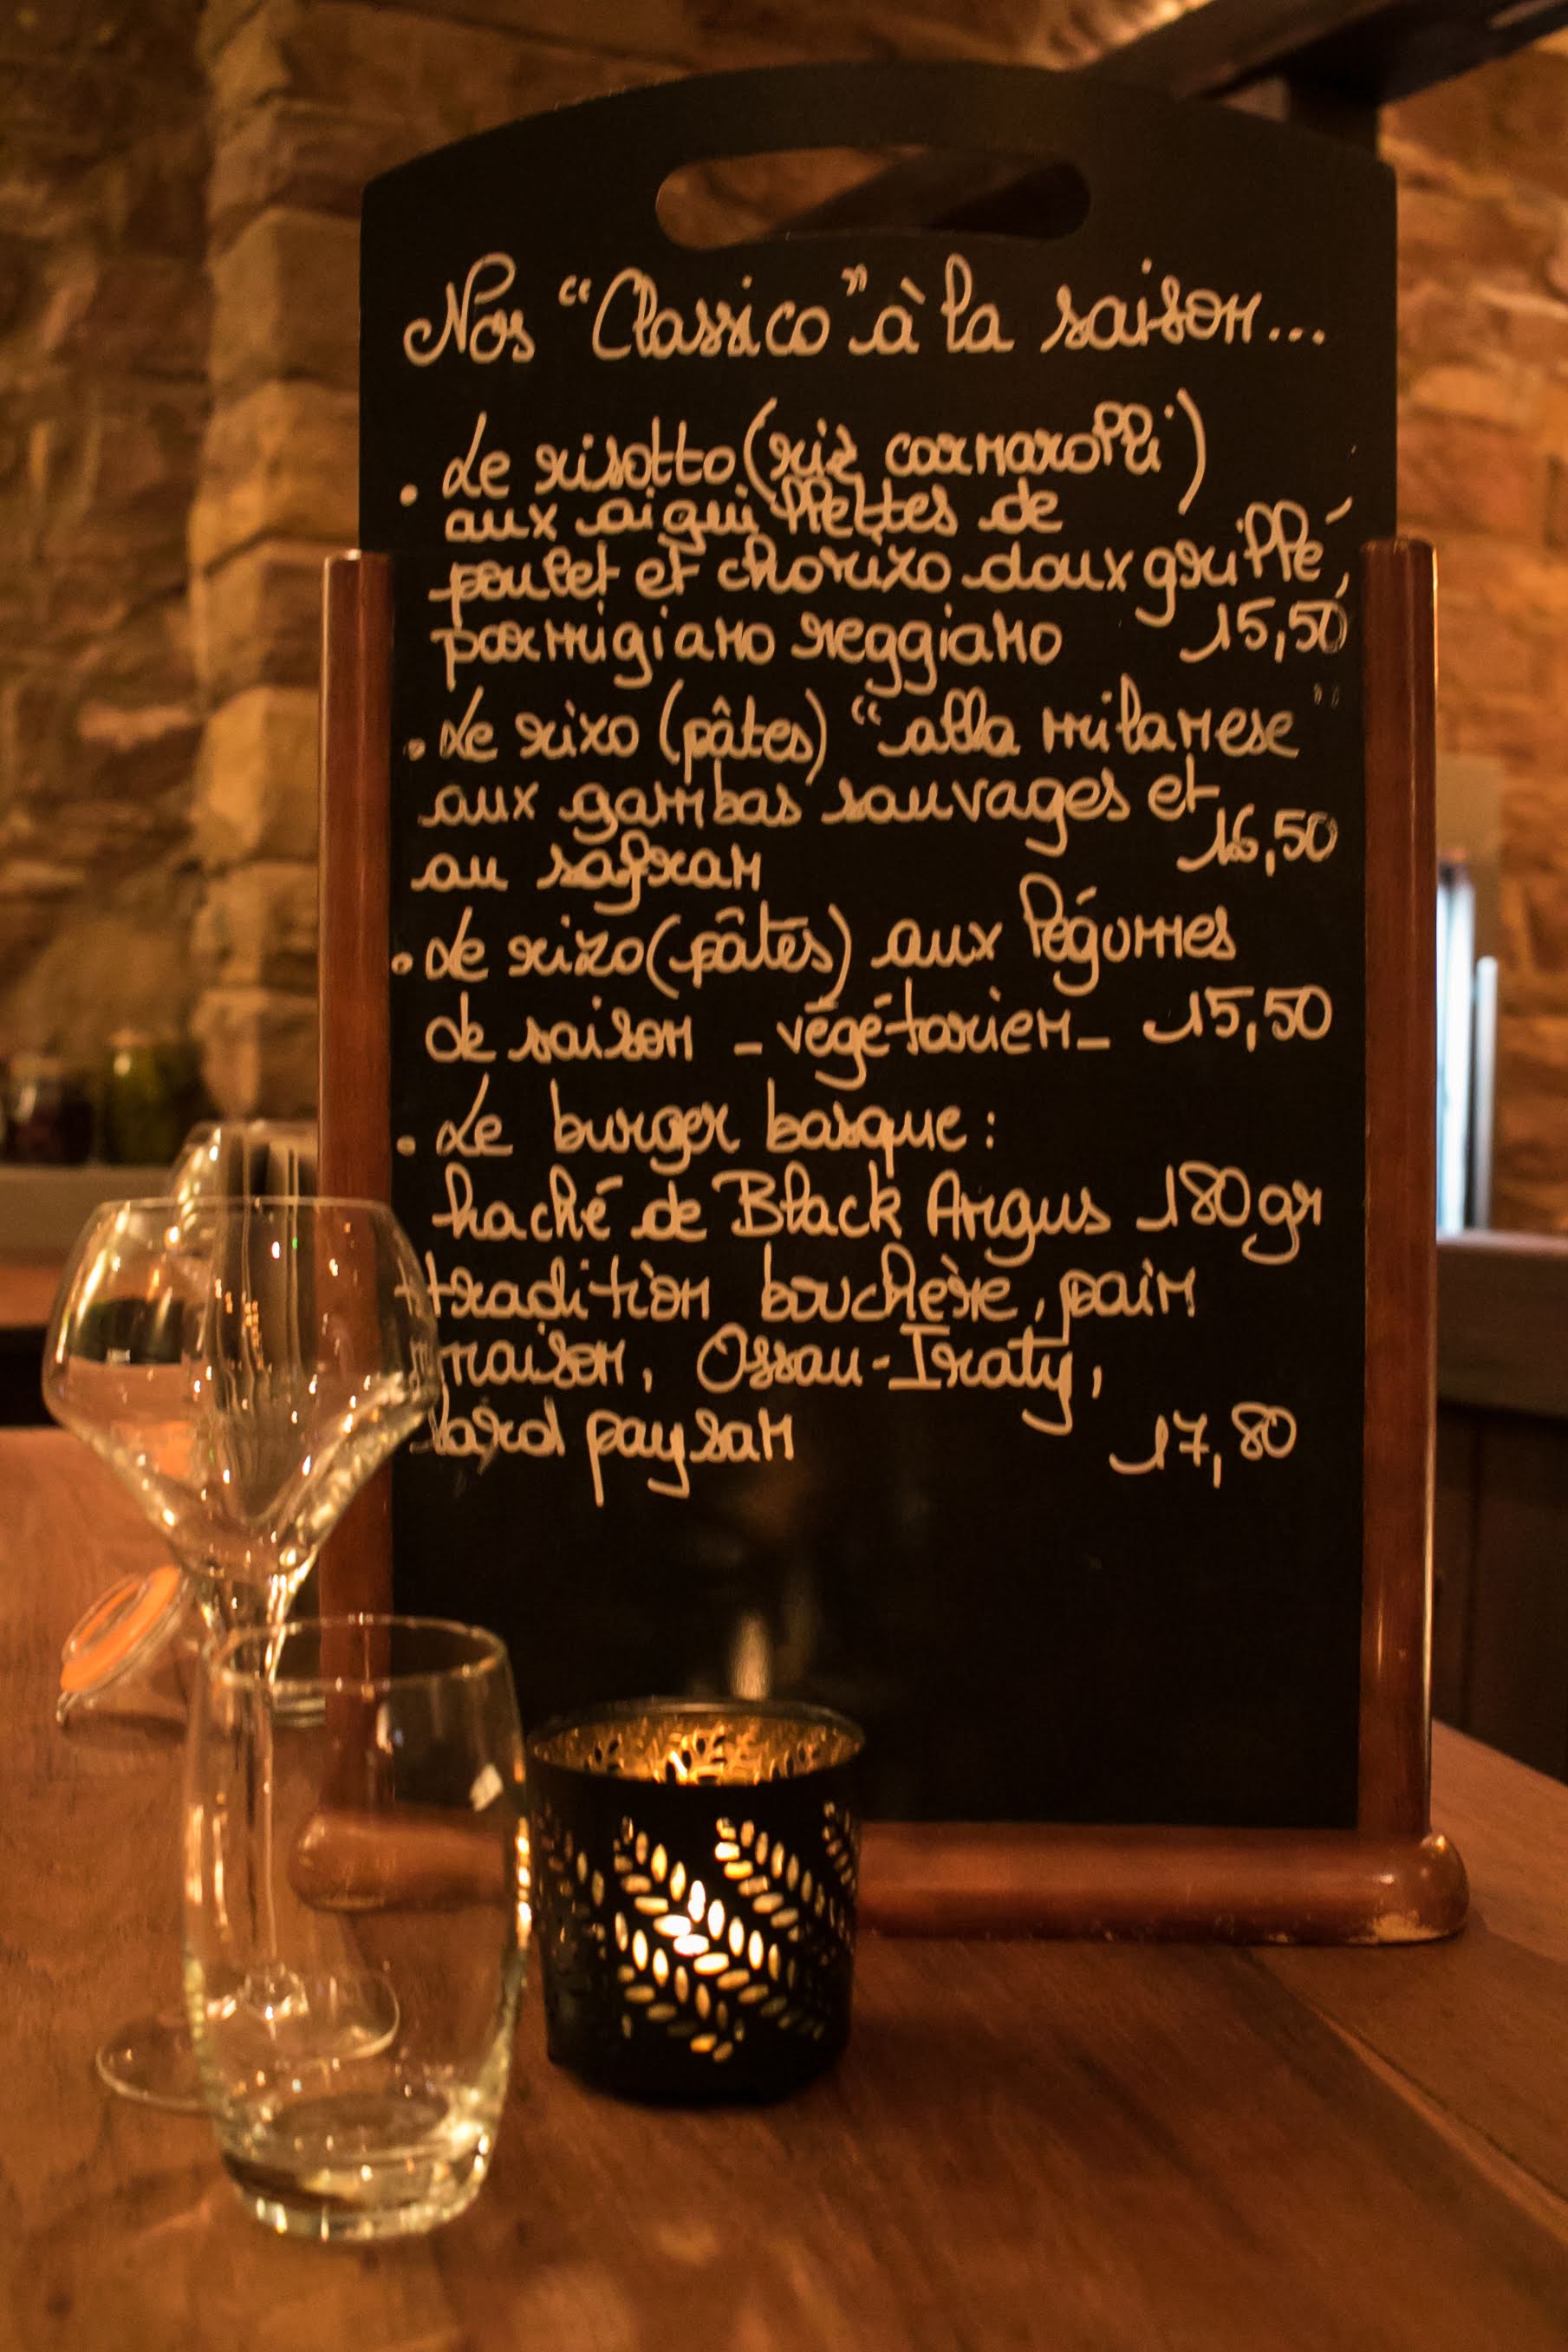 Nos "Classico" à la saison...
. Le risotto (riz carnarolli)
aux aiguillettes de
poulet et chorizo doux grillé,
parmigiano reggiano 15,50
. Le rizo (pâtes) "alla milanese"
aux gambas sauvages et
au safran 16,50
. Le rizo (pâtes) aux légumes
de saison _ végétarien _ 15,50
. Le burger basque :
haché de Black Angus 180gr
tradition bouchère, pain
maison, Ossau-Iraty,
lard paysan 17,80